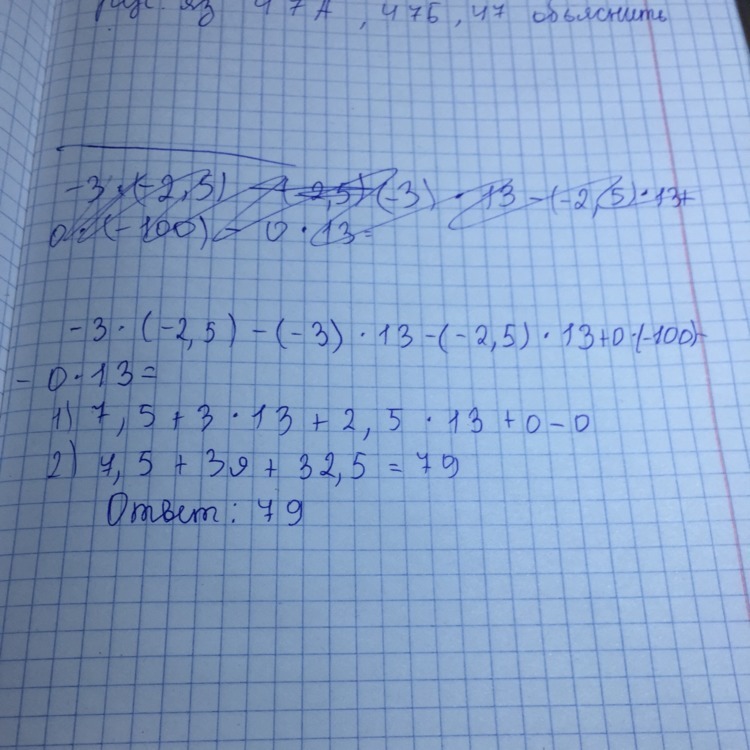 рус. яз 47А, 47Б, 47 объяснить
-3 · (-2,5) - (-2,5) (-3) · 13 - (-2,5) · 13 +
0 · (-100) - 0 · 13 =
-3 · (-2,5) - (-3) · 13 - (-2,5) · 13 + 0 · (-100) -
- 0 · 13 =
1) 7,5 + 3 · 13 + 2,5 · 13 + 0 - 0
2) 7,5 + 39 + 32,5 = 79
Ответ: 79